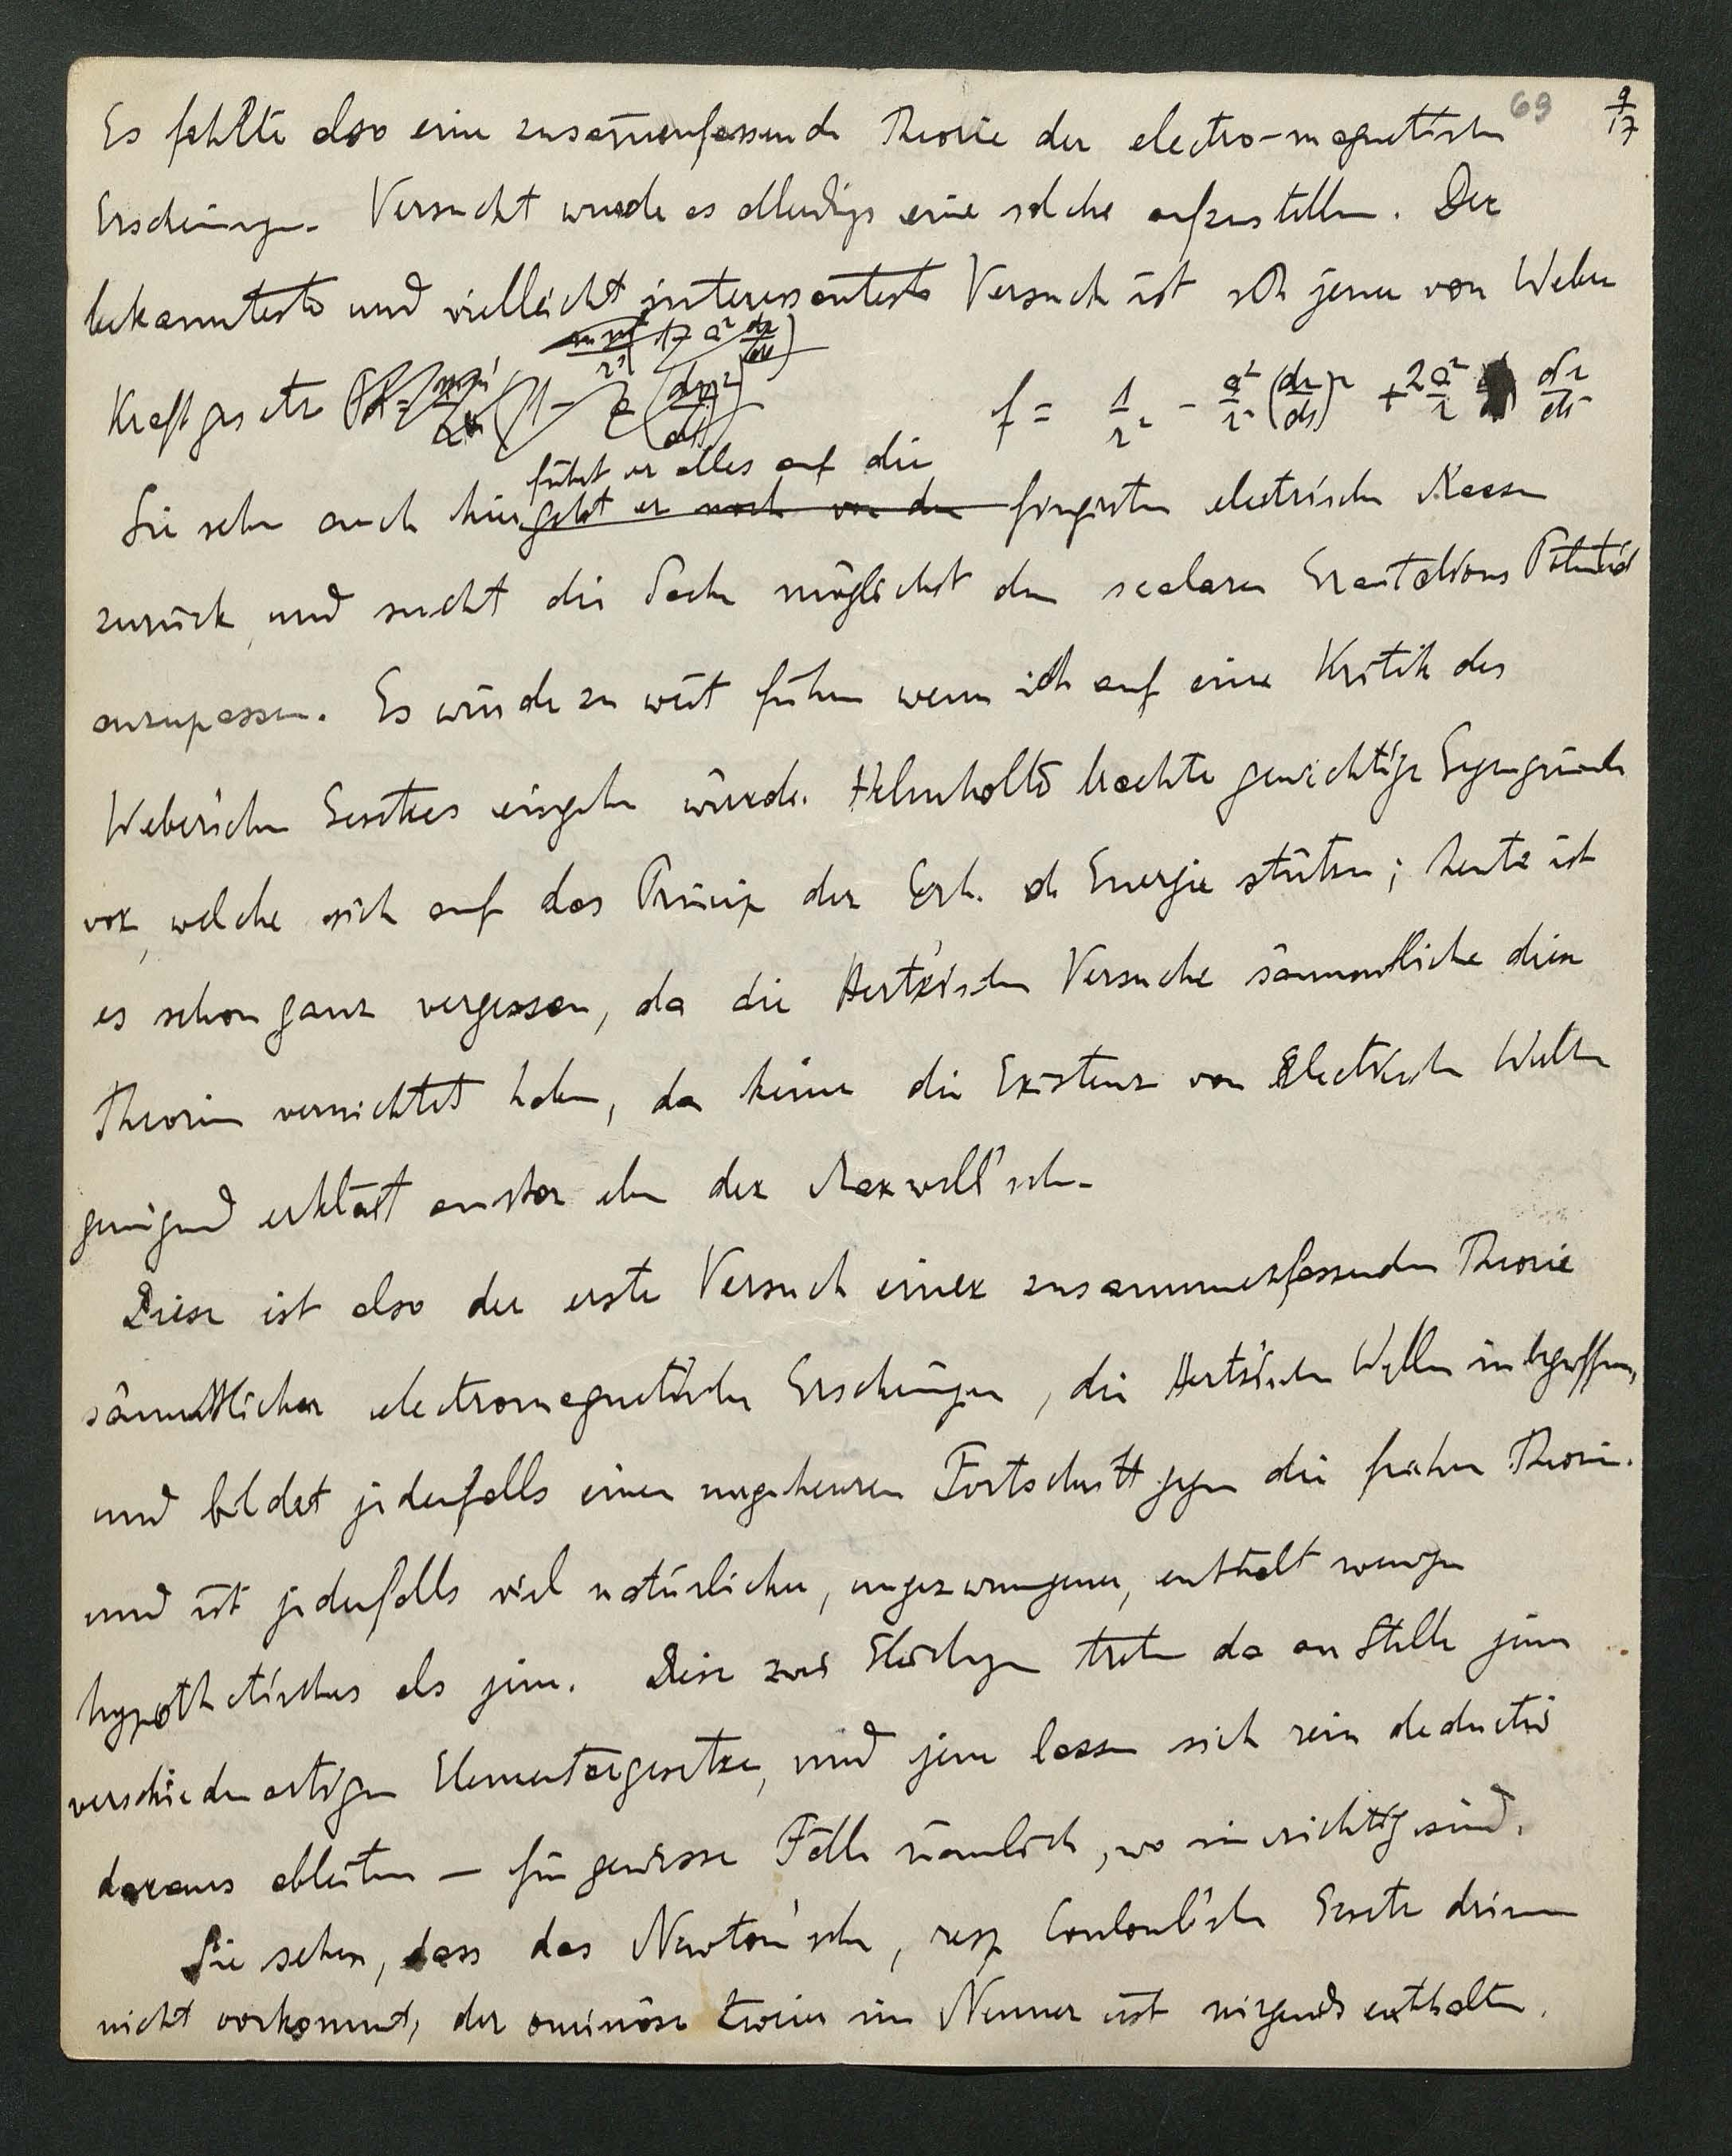 69 9/17
Es fehlte also eine zusammenfassende Theorie der electro-magnetischen
Erscheinungen. Versucht wurde es allerdings eine solche aufzustellen. Der
bekannteste und vielleicht interessanteste Versuch ist jener von Weber
Kraftgesetz f = 1/r² - a²/r² (dr/ds)² + 2a²/r
führt er alles auf die
Sie sehen auch hier geht er noch von den fingirten electrischen Massen
zurück, und sucht die Sache möglichst dem scalaren Gravitations Potential
anzupassen. Es würde zu weit führen wenn ich auf eine Kritik des
Weber'schen Gesetzes eingehen würde. Helmholtz brachte gewichtige Gegengründe
vor, welche sich auf das Princip der Erh. d Energie stützen; heute ist
es schon ganz vergessen, da die Hertz'schen Versuche sämmtliche diese
Theorien vernichtet haben, da keine die Existenz von Electrischen Wellen
genügend erklärt ausser eben der Maxwell'schen.
Diese ist also der erste Versuch einer zusammenfassenden Theorie
sämmtlicher electromagnetischer Erscheinungen, die Hertz'schen Wellen inbegriffen,
und bildet jedenfalls einen ungeheuren Fortschritt gegen die frühern Theorien.
und ist jedenfalls viel natürlicher, ungezwungener, enthält weniger
hypothetisches als jene. Diese zwei Gleichungen treten da an Stelle jener
verschiedenartigen Elementargesetze, und jene lassen sich rein deductiv
daraus ableiten — für gewisse Fälle nämlich, wo sie richtig sind.
Sie sehen, dass das Newton'sche, resp Coulomb'sche Gesetz drinnen
nicht vorkommt, der ominöse Zweier im Nenner ist nirgends enthalten.